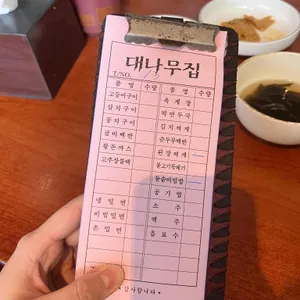 대나무집
T/NO.
품 명 수량 품 명 수량
고등어구이 육 개 장
삼치구이 떡만두국
꽁치구이 김치찌개
굴비백반 순두부백반
황돈까스 된장찌개
고추장불백 불고기뚝배기
돌솥비빔밥
공 기 밥
냉 밀 면 소 주
비빔밀면 맥 주
온 밀 면 음 료 수
감사합니다